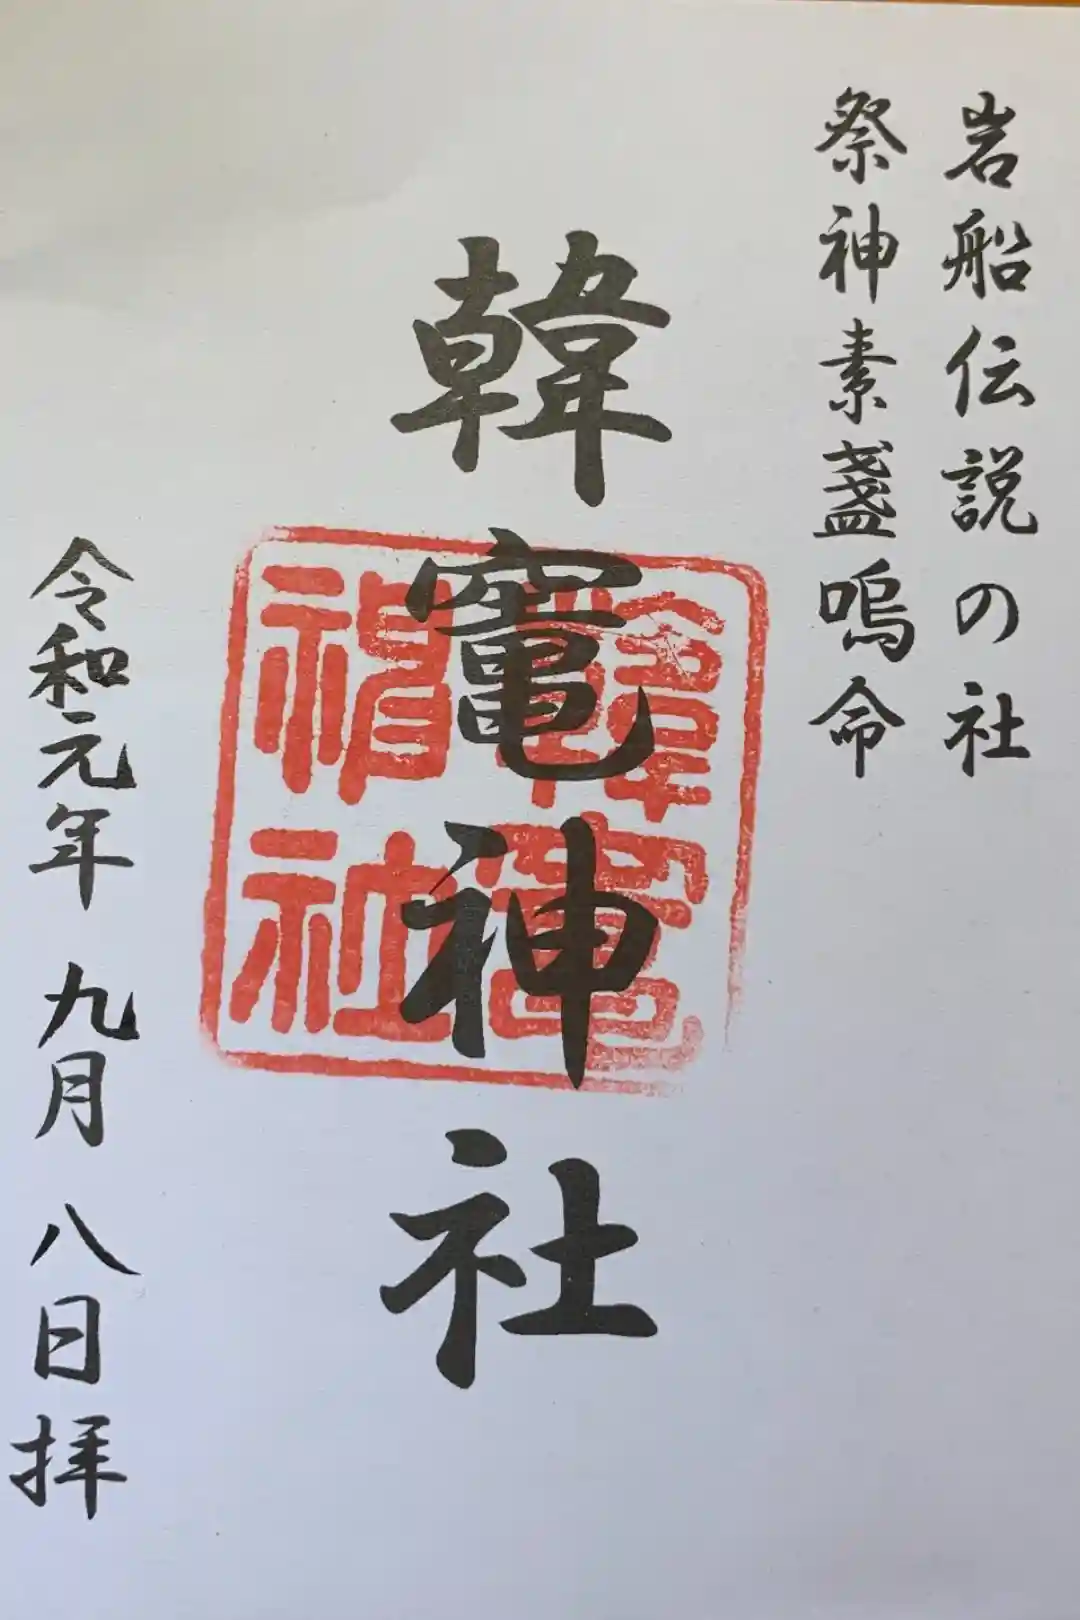 岩船伝説の社
祭神素盞嗚命
韓竈神社
韓竈神社
令和元年 九月 八日拝